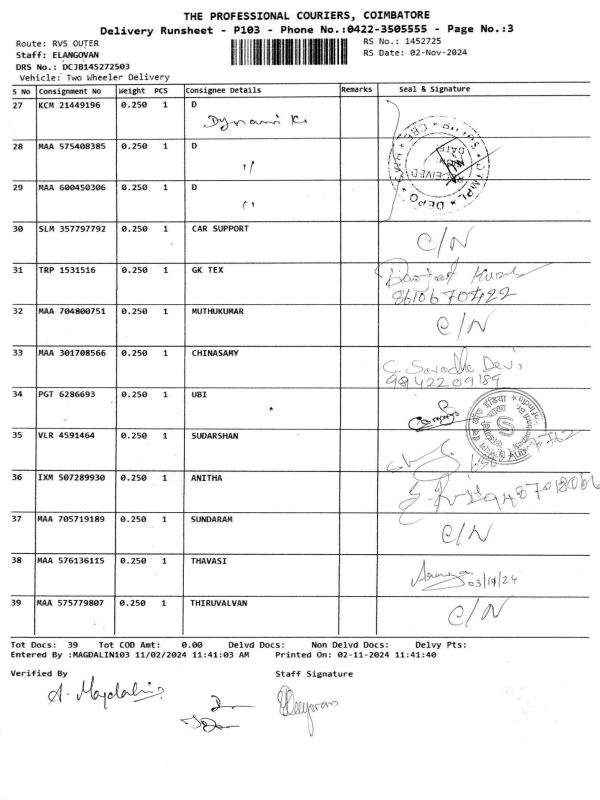 THE PROFESSIONAL COURIERS, COIMBATORE
Delivery Runsheet - P103 - Phone No.:0422-3505555 - Page No.:3
Route: RVS OUTER RS No.: 1452725
Staff: ELANGOVAN RS Date: 02-Nov-2024
DRS No.: DCJB145272503
Vehicle: Two Wheeler Delivery
S No Consignment No Weight PCS Consignee Details Remarks Seal & Signature
27 KCM 21449196 0.250 1 D
28 MAA 575408385 0.250 1 D
29 MAA 600450306 0.250 1 D
30 SLM 357797792 0.250 1 CAR SUPPORT C/N
31 TRP 1531516 0.250 1 GK TEX
8610670422
32 MAA 704800751 0.250 1 MUTHUKUMAR C/N
33 MAA 301708566 0.250 1 CHINASAMY
9842209189
34 PGT 6286693 0.250 1 UBI
35 VLR 4591464 0.250 1 SUDARSHAN
36 IXM 507289930 0.250 1 ANITHA
37 MAA 705719189 0.250 1 SUNDARAM C/N
38 MAA 576136115 0.250 1 THAVASI
39 MAA 575779807 0.250 1 THIRUVALVAN C/N
Tot Docs: 39 Tot COD Amt: 0.00 Delvd Docs: Non Delvd Docs: Delvy Pts:
Entered By :MAGDALIN103 11/02/2024 11:41:03 AM Printed On: 02-11-2024 11:41:40
Verified By Staff Signature